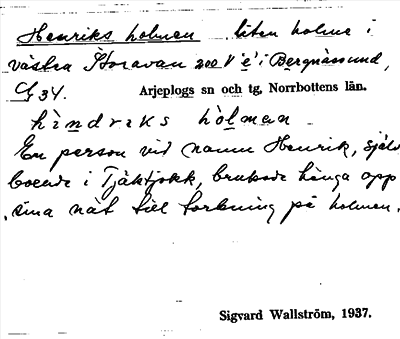 Henriks holmen liten holme i
västra Storavan 200 V é i Bergnäsund,
G 34. Arjeplogs sn och tg, Norrbottens län.
hìndrɛks hòlman
En person vid namn Henrik, själv
boende i Tjäktjokk, brukade hänga opp
sina nät till torkning på holmen.
Sigvard Wallström, 1937.